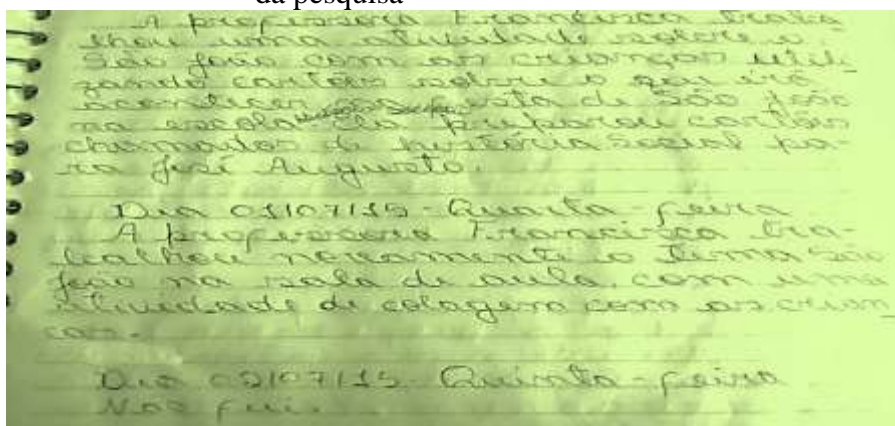 da pesquisa
A professora Francisca traba
lhou uma atividade sobre o
São João com as crianças utili
zando cartões sobre o que irá
acontecer festa de São João
na escola. Ela preparou cartões
chamados de história social pa-
ra José Augusto.
Dia 01/07/15 - Quarta - feira
A professora Francisca tra-
balhou novamente o tema São
João na sala de aula, com uma
atividade de colagem com as crian
ças.
Dia 02/07/15 - Quinta - feira
Não fui.